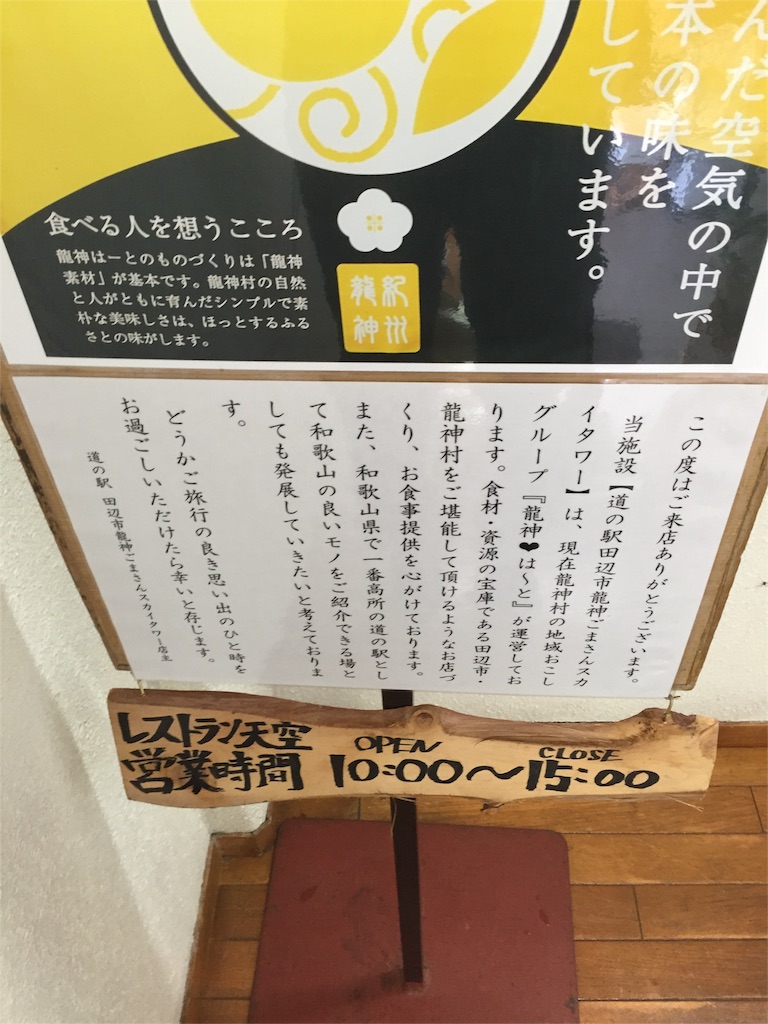 んだ空気の中で
本の味を
しています。
食べる人を想うこころ
龍神はーとのものづくりは「龍神
素材」が基本です。龍神村の自然
と人がともに育んだシンプルで素
朴な美味しさは、ほっとするふる
さとの味がします。
紀州
龍神
この度はご来店ありがとうございます。
当施設【道の駅田辺市龍神ごまさんスカ
イタワー】は、現在龍神村の地域おこし
グループ『龍神❤は～と』が運営してお
ります。食材・資源の宝庫である田辺市・
龍神村をご堪能して頂けるようなお店づ
くり、お食事提供を心がけております。
また、和歌山県で一番高所の道の駅とし
て和歌山の良いモノをご紹介できる場と
しても発展していきたいと考えておりま
す。
どうかご旅行の良き思い出のひと時を
お過ごしいただけたら幸いと存じます。
道の駅 田辺市龍神ごまさんスカイタワー店主
レストラン天空
営業時間
OPEN CLOSE
10:00～15:00